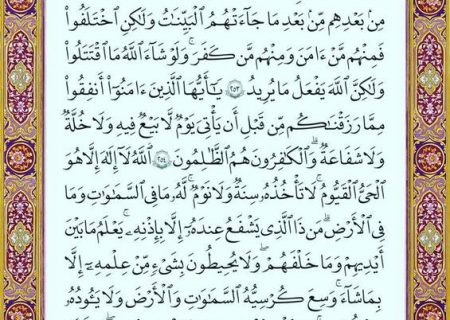 مِنۢ بَعْدِهِم مِّنۢ بَعْدِ مَا جَآءَتْهُمُ ٱلْبَيِّنَٰتُ وَلَٰكِنِ ٱخْتَلَفُوا۟
فَمِنْهُم مَّنْ ءَامَنَ وَمِنْهُم مَّن كَفَرَ ۚ وَلَوْ شَآءَ ٱللَّهُ مَا ٱقْتَتَلُوا۟
وَلَٰكِنَّ ٱللَّهَ يَفْعَلُ مَا يُرِيدُ ٢٥٣ يَٰٓأَيُّهَا ٱلَّذِينَ ءَامَنُوٓا۟ أَنفِقُوا۟
مِمَّا رَزَقْنَٰكُم مِّن قَبْلِ أَن يَأْتِىَ يَوْمٌ لَّا بَيْعٌ فِيهِ وَلَا خُلَّةٌ
وَلَا شَفَٰعَةٌ ۗ وَٱلْكَٰفِرُونَ هُمُ ٱلظَّٰلِمُونَ ٢٥٤ ٱللَّهُ لَآ إِلَٰهَ إِلَّا هُوَ
ٱلْحَىُّ ٱلْقَيُّومُ ۚ لَا تَأْخُذُهُۥ سِنَةٌ وَلَا نَوْمٌ ۚ لَّهُۥ مَا فِى ٱلسَّمَٰوَٰتِ وَمَا
فِى ٱلْأَرْضِ ۗ مَن ذَا ٱلَّذِى يَشْفَعُ عِندَهُۥٓ إِلَّا بِإِذْنِهِۦ ۚ يَعْلَمُ مَا بَيْنَ
أَيْدِيهِمْ وَمَا خَلْفَهُمْ ۖ وَلَا يُحِيطُونَ بِشَىْءٍ مِّنْ عِلْمِهِۦٓ إِلَّا
بِمَا شَآءَ ۚ وَسِعَ كُرْسِيُّهُ ٱلسَّمَٰوَٰتِ وَٱلْأَرْضَ ۖ وَلَا يَـُٔودُهُۥ